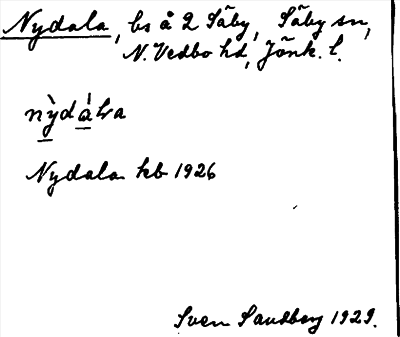 Nydala, bs å 2 Säby, Säby sn,
N. Vedbo hd, Jönk. l.
nỳdála
Nydala kb 1926
Sven Sandberg 1929.